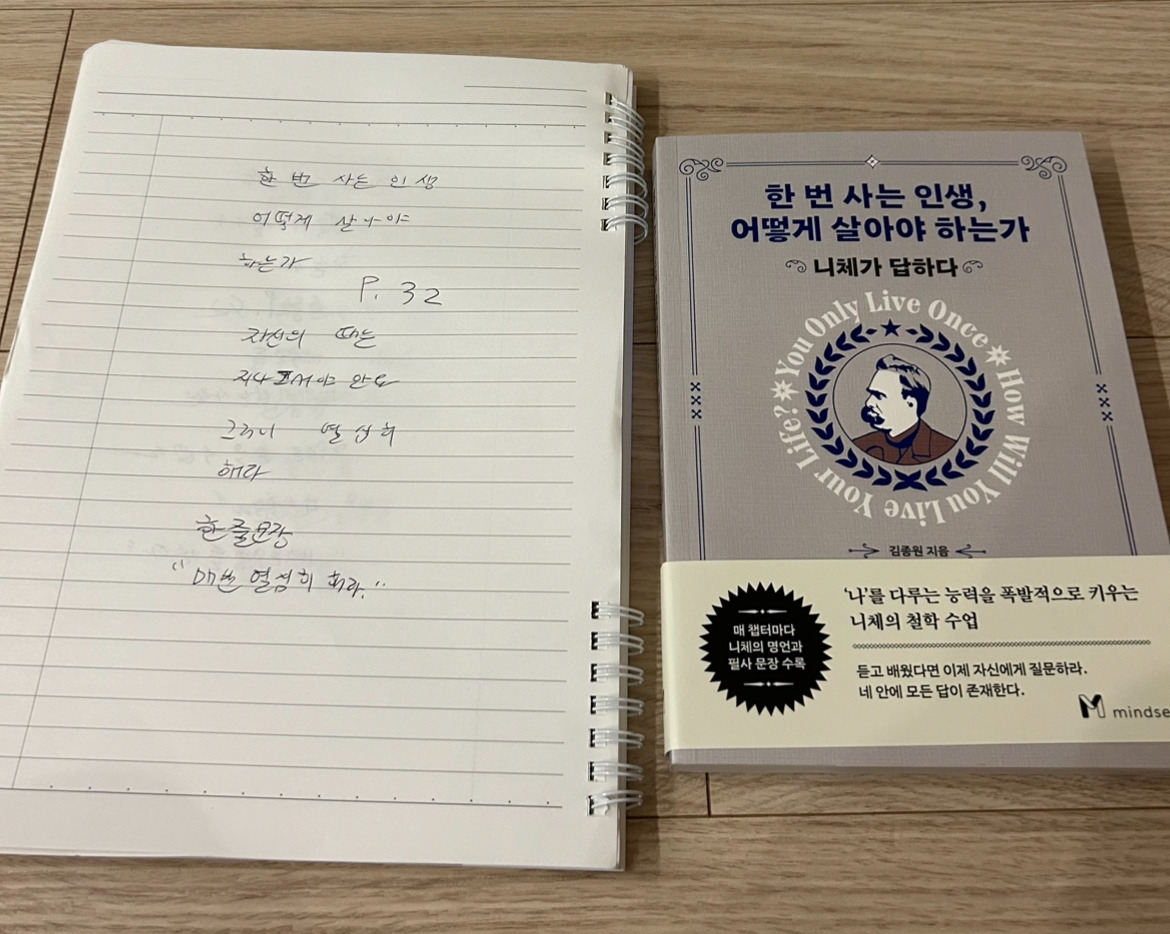 한 번 사는 인생
어떻게 살아야
하는가
P. 32
자신의 때는
지나고서야 안다
그러니 열심히
해라
한줄문장
"매번 열심히 해라."
한 번 사는 인생,
어떻게 살아야 하는가
니체가 답하다
You Only Live Once
How Will You Live Your Life?
김종원 지음
매 챕터마다
니체의 명언과
필사 문장 수록
'나'를 다루는 능력을 폭발적으로 키우는
니체의 철학 수업
듣고 배웠다면 이제 자신에게 질문하라.
네 안에 모든 답이 존재한다.
mindse